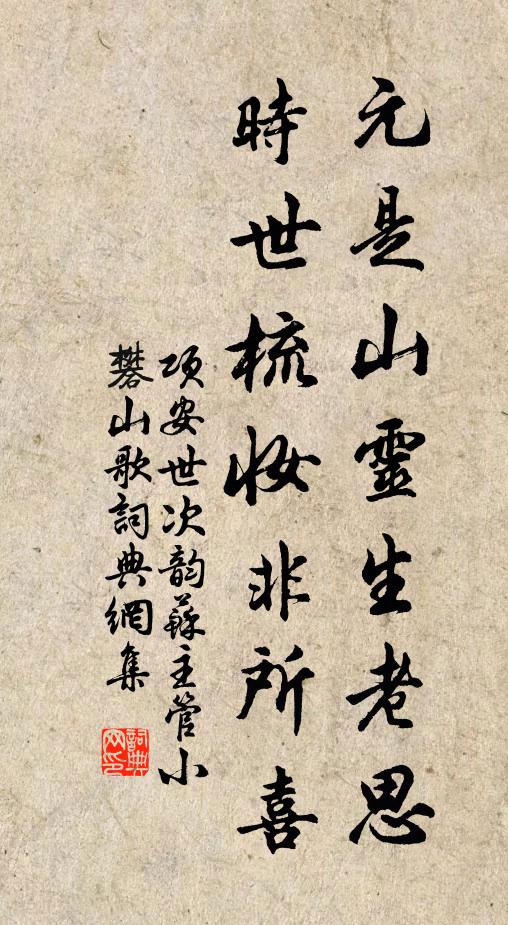 元是山靈生老思
時世梳妆非所喜
项安世次韵蘇主管小
礬山歌詞典網集
詞典
网印